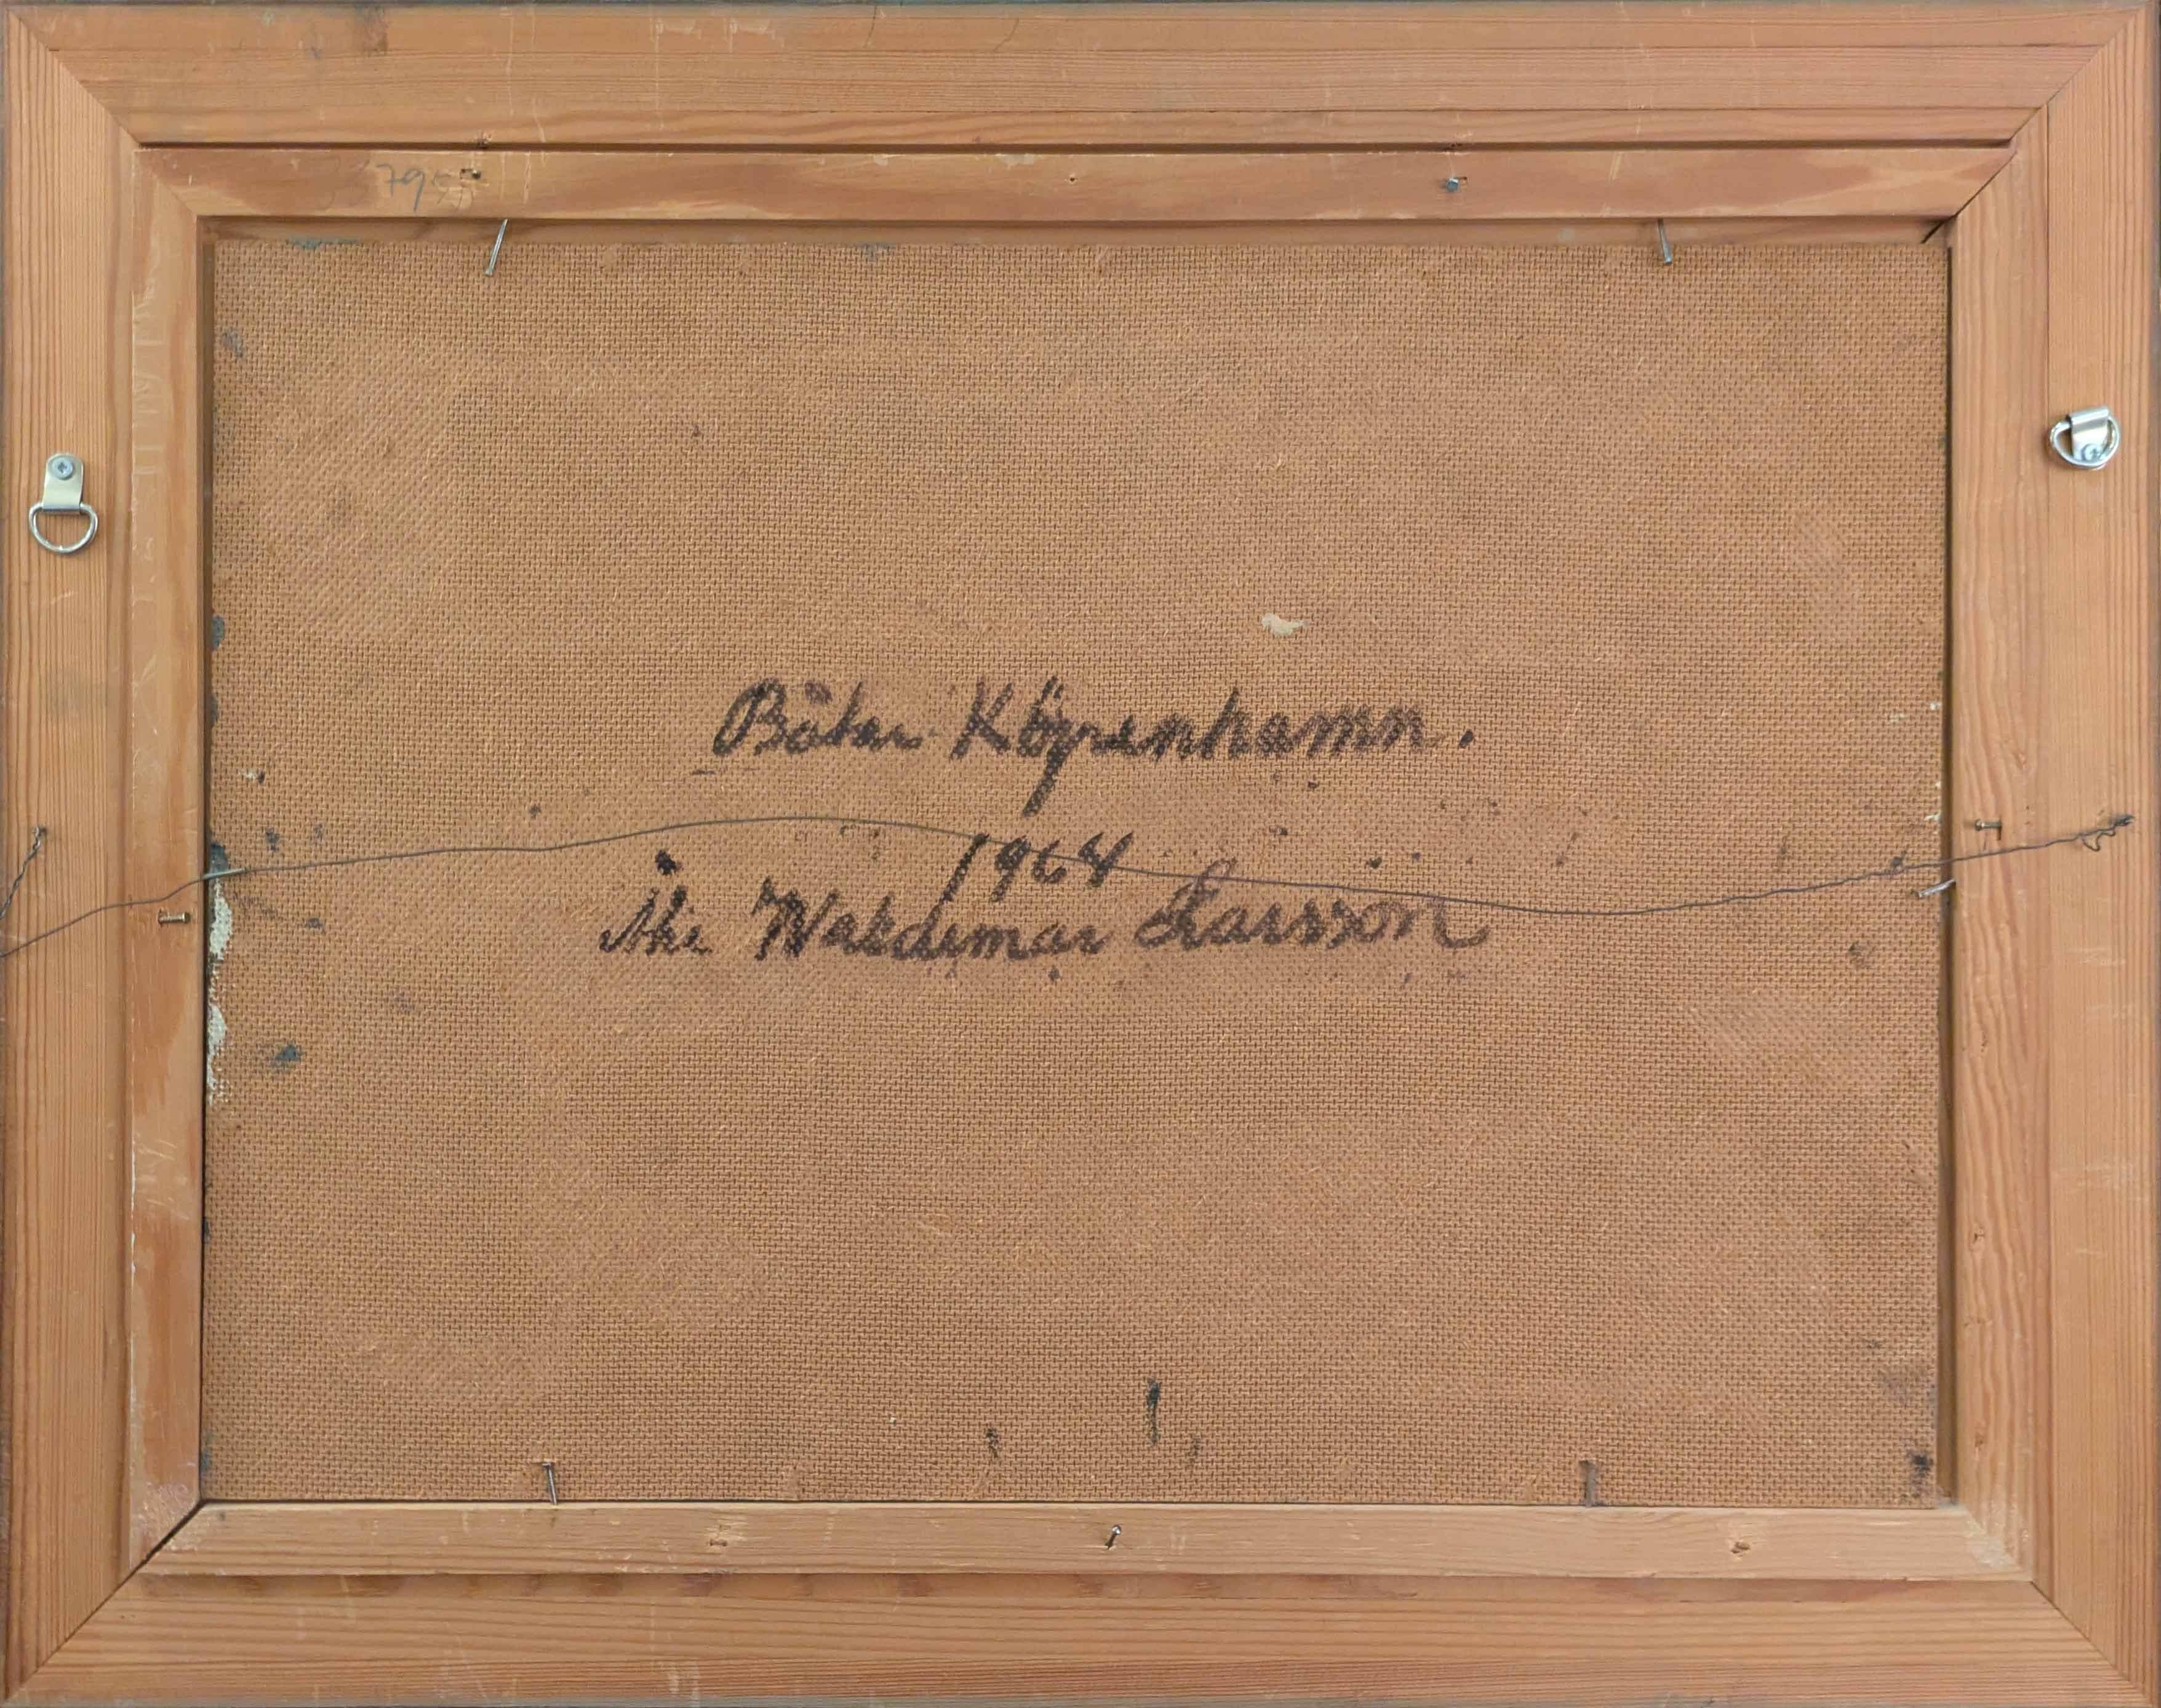 Båtar Köpenhamn.
1964
Åke Waldemar Larsson